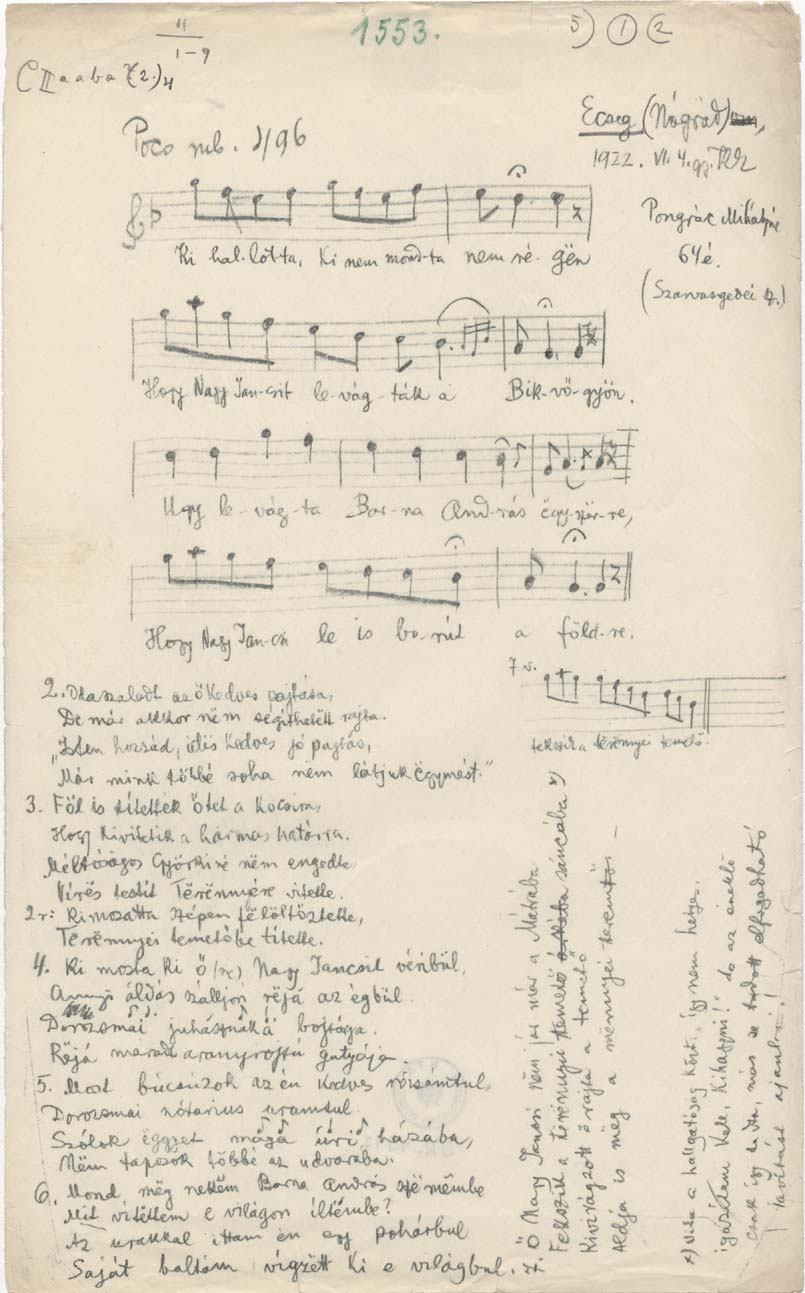 11
1-9
1553.
5) 1 2
C II a a b a 7(2.)4
Ecseg (Nógrád)
1922. VI. 4. gy.
Poco rub. ♩/96
Pongrác Mihályné
64 é.
(Szarvasgedei sz.)
Ki hal-lot-ta, Ki nem mond-ta nem-ré-gën
Hogy Nagy Jan-csit le-vág-ták a Bik-vö-gyön.
Ugy le-vág-ta Bar-na And-rás ëgy-szër-re,
Hogy Nagy Jan-csi le is bo-rút a föld-re.
7 v.
fekszik a tërënnyei temető.
2. Odaszaladt az ő kedves pajtása,
De már akkor nëm sëgíthetëtt rajta.
„Isten hozzád, idës kedves jó pajtás,
Már mink többé soha nëm látjuk ëgymást."
3. Föl is titették őtet a kocsira,
Hogy kivitték a hármas határra.
Méltóságos Györkiné nëm engedte,
Vérës testit Tërënnyére vitette.
2r: Kimosatta szépen fëlöltöztette,
Tërënnyei temetőbe títette.
4. Ki mosta ki Ő Nagy Jancsit véribül,
Annyi áldás szálljon rëjá az égbül.
Dorozsmai juhásznak a bojtárja.
Rëjá maradt aranyrojtú gatyája.
5. Most búcsúzok az én kedves rózsámtul,
Dorozsmai nótárius uramtul.
Szólok ëggyet maga úri házába,
Nëm tapszok többé az udvarába.
6. Mond még nekëm Barna András szëmëmbe
Mit vítettem e világon iltëmbe?
Az urakkal ittam én egy pohárbul
Saját baltám vígzëtt ki e világbul.
7. Ő Nagy Jancsi nëm jár már a Mátrába
Fekszik a tërënnyei temető sáncába x)
Kivirágzott ő rajta a temető
Áldja is mëg a mënnyei teremtő –
x) Vita a hallgatóság közt, így nem helyes,
igazítani kell, kihagyni! do az éneklő
csak így tudta, más se tudott elfogadható
javítást ajánlni!